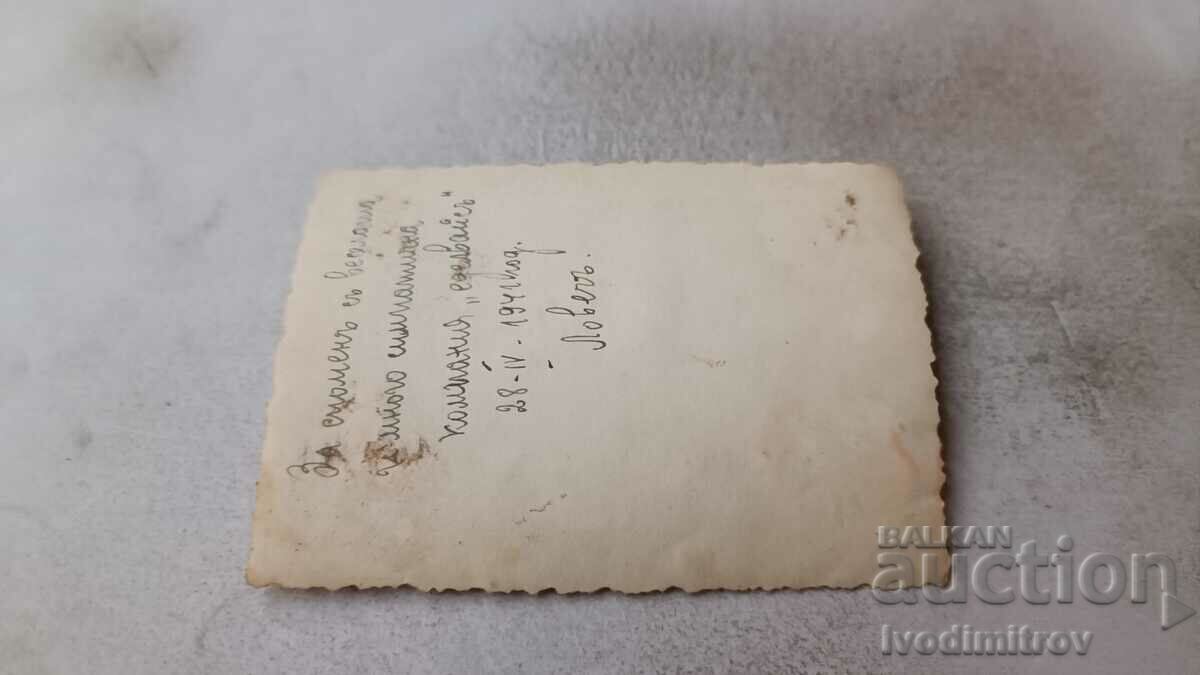 За споменъ съ веселата
и много симпатична
компания „еделвайсъ"
28-IV-1941 год.
Ловечъ.
BALKAN
auction
Ivodimitrov